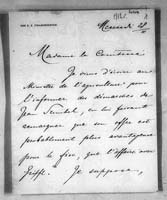 Mercredi
Madame la Comtesse
Je viens d'écrire au
Ministre de l'agriculture pour
l'informer des démarches de
Jean en lui faisant
remarquer que son offre est
probablement plus avantageuse
pour le fisc, que l'affaire avec
Je suppose,